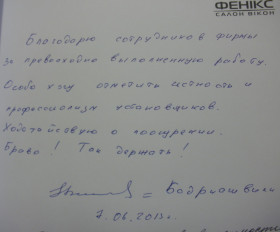 ФЕНІКС
САЛОН ВІКОН
Благодарю сотрудников фирмы
за превосходно выполненную работу.
Особо хочу отметить честность и
профессионализм установщиков.
Ходатайствую о поощрении.
Браво! Так держать!
= Бодриашвили
7.06.2013г.